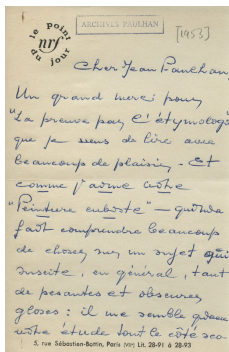 le point
nrf
du jour
ARCHIVES PAULHAN
[1953]
Cher Jean Paulhan,
Un grand merci pour
"La preuve par l'étymologie
que je viens de lire avec
beaucoup de plaisir. Et
comme j'aime votre
"Peinture cubiste" — qui m'a
fait comprendre beaucoup
de choses, sur un sujet qui
suscite, en général, tant
de pesantes et obscures
gloses : il me semble
votre étude tout le côté sco-
5, rue Sébastien-Bottin, Paris (VIIe) Lit. 28-91 à 28-93